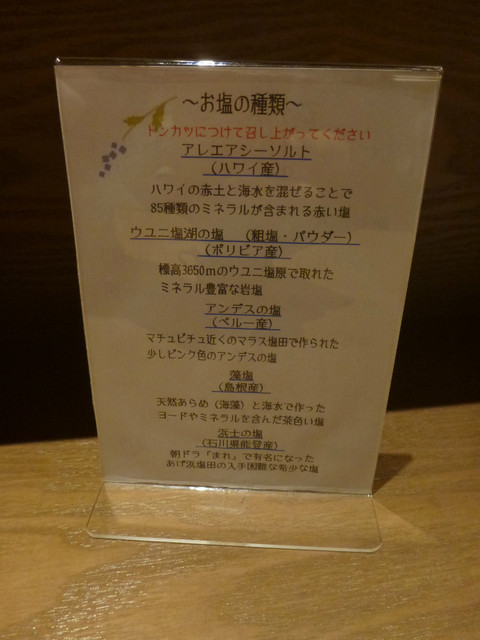 ～お塩の種類～
トンカツにつけて召し上がってください
アレエアシーソルト
（ハワイ産）
ハワイの赤土と海水を混ぜることで
85種類のミネラルが含まれる赤い塩
ウユニ塩湖の塩　（粗塩・パウダー）
（ボリビア産）
標高3650mのウユニ塩原で取れた
ミネラル豊富な岩塩
アンデスの塩
（ペルー産）
マチュピチュ近くのマラス塩田で作られた
少しピンク色のアンデスの塩
藻塩
（島根産）
天然あらめ（海藻）と海水で作った
ヨードやミネラルを含んだ茶色い塩
浜士の塩
（石川県能登産）
朝ドラ「まれ」で有名になった
あげ浜塩田の入手困難な希少な塩